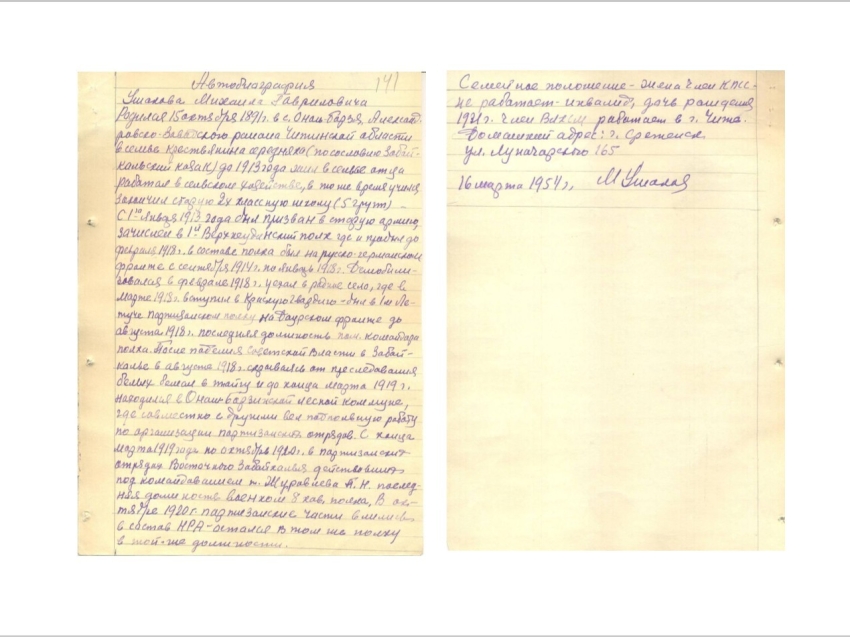 Автобиография 141
Ушакова Михаила Гавриловича
Родился 15 октября 1891 г. в с. Онан-Борзя, Александ-
ровско-Заводского района Читинской области
в семье крестьянина середняка (по сословию Забай-
кальский казак) до 1913 года жил в семье отца
работал в сельском хозяйстве, в то же время учился
закончил 2х классную школу (5 групп) –
С 1го Января 1913 года был призван в старую армию,
зачислен в 1й Верхнеудинский полк где и пробыл до
февраля 1918 г. в составе полка был на русско-германском
фронте с сентября 1914 г. по январь 1918 г. Демобили-
зовался в феврале 1918 г. уехал в родное село, где в
марте 1918 г. вступил в Красную Гвардию – был в 1м
партизанском полку на Даурском фронте до
августа 1918 г. последняя должность пом. командира
полка. После падения Советской Власти в Забай-
калье в августе 1918 г. скрываясь от преследования
белых бежал в тайгу и до конца марта 1919 г.
находился в лесной коммуне,
где совместно с другими вел подпольную работу
по организации партизанских отрядов. С конца
марта 1919 года по октябрь 1920 г. в партизанских
отрядах Восточного Забайкалья действовавших
под командованием т. Журавлева П. Н. послед-
няя должность военком 8 кав. полка, В ок-
тябре 1920 г. партизанские части влились
в состав НРА – остался в том же полку
в той-же должности.
Семейное положение – жена член КПСС –
не работает – инвалид, дочь рождения
член ВЛКСМ работает в г. Чита.
Домашний адрес: г. Сретенск
ул. Луначарского 165
16 марта 1954 г. М Ушаков